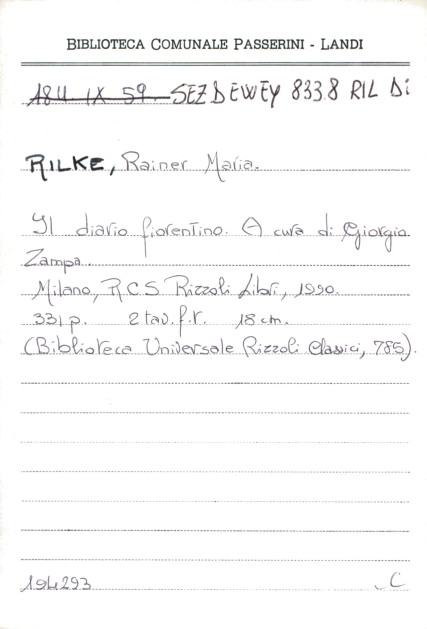 BIBLIOTECA COMUNALE PASSERINI - LANDI
184 IX 59 SEZ DEWEY 833.8 RIL Di
RILKE, Rainer Maria.
Il diario fiorentino. A cura di Giorgio
Zampa.
Milano, R.C.S. Rizzoli Libri, 1990.
331 p. 2 tav. f.t. 18 cm.
(Biblioteca Universale Rizzoli Classici, 785).
194293 C